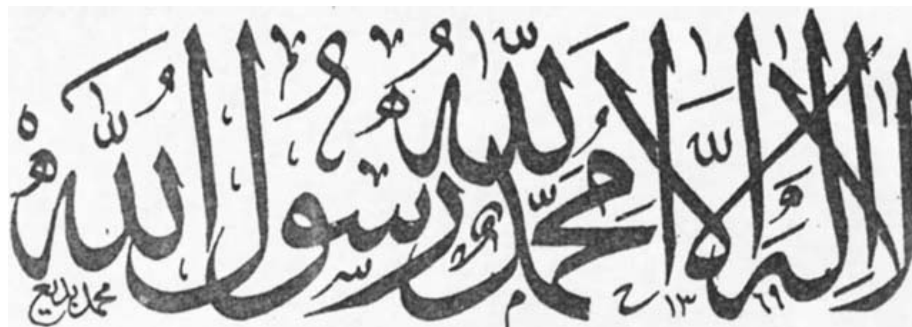 لا إله إلا الله محمد رسول الله
محمد بديع
١٣٦٩